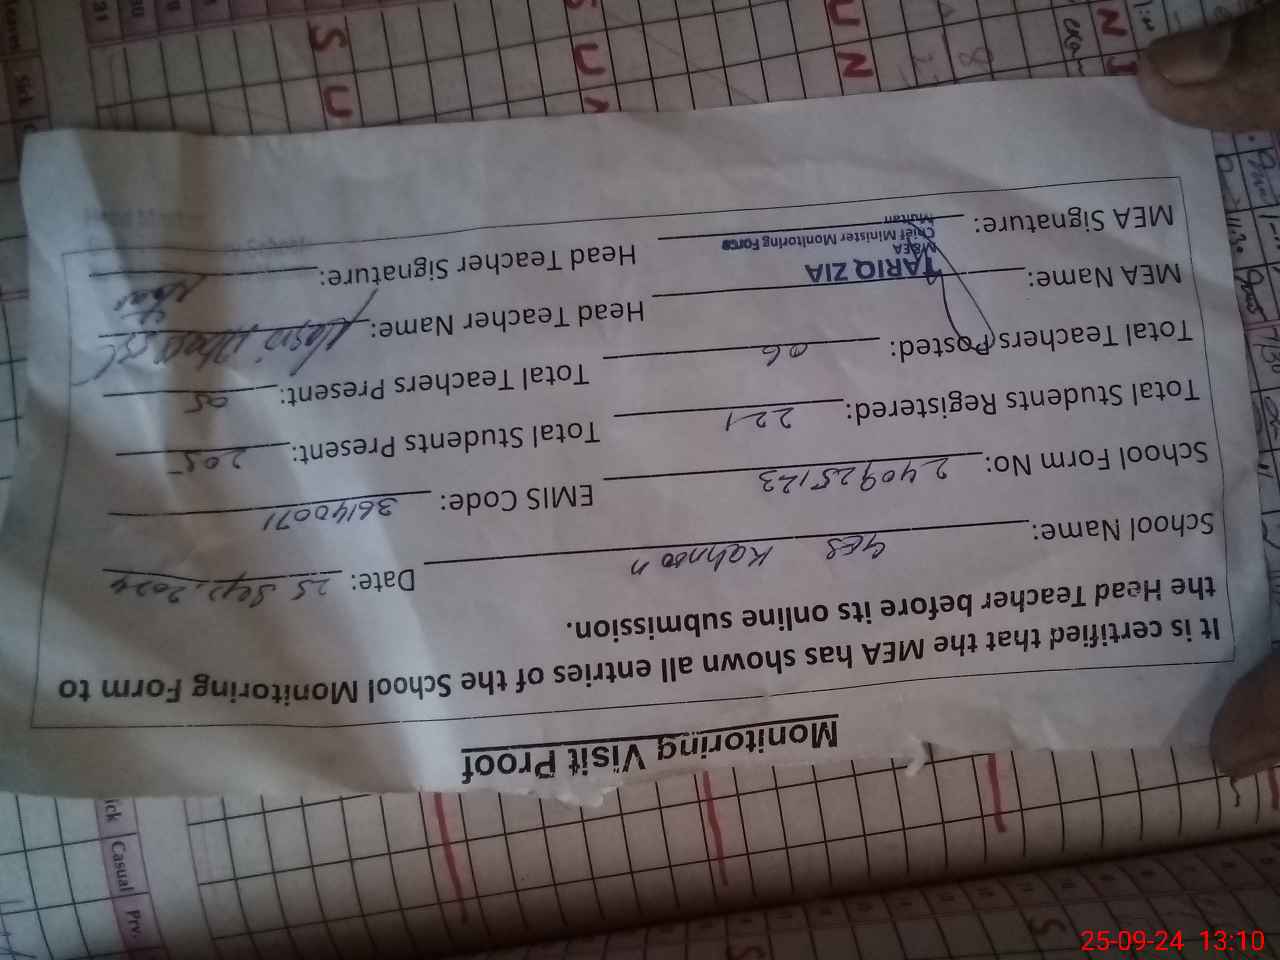 Monitoring Visit Proof
It is certified that the MEA has shown all entries of the School Monitoring Form to
the Head Teacher before its online submission.
School Name: GES Kahnoon Date: 25 Sep, 2024
School Form No: 240925123 EMIS Code: 36140071
Total Students Registered: 221 Total Students Present: 205
Total Teachers Posted: 06 Total Teachers Present: 05
MEA Name: TARIQ ZIA Head Teacher Name:
MEA
Chief Minister Monitoring Force
Multan
MEA Signature: Head Teacher Signature:
S U
S U N
U N
N
Casual
Prv.
S
25-09-24 13:10